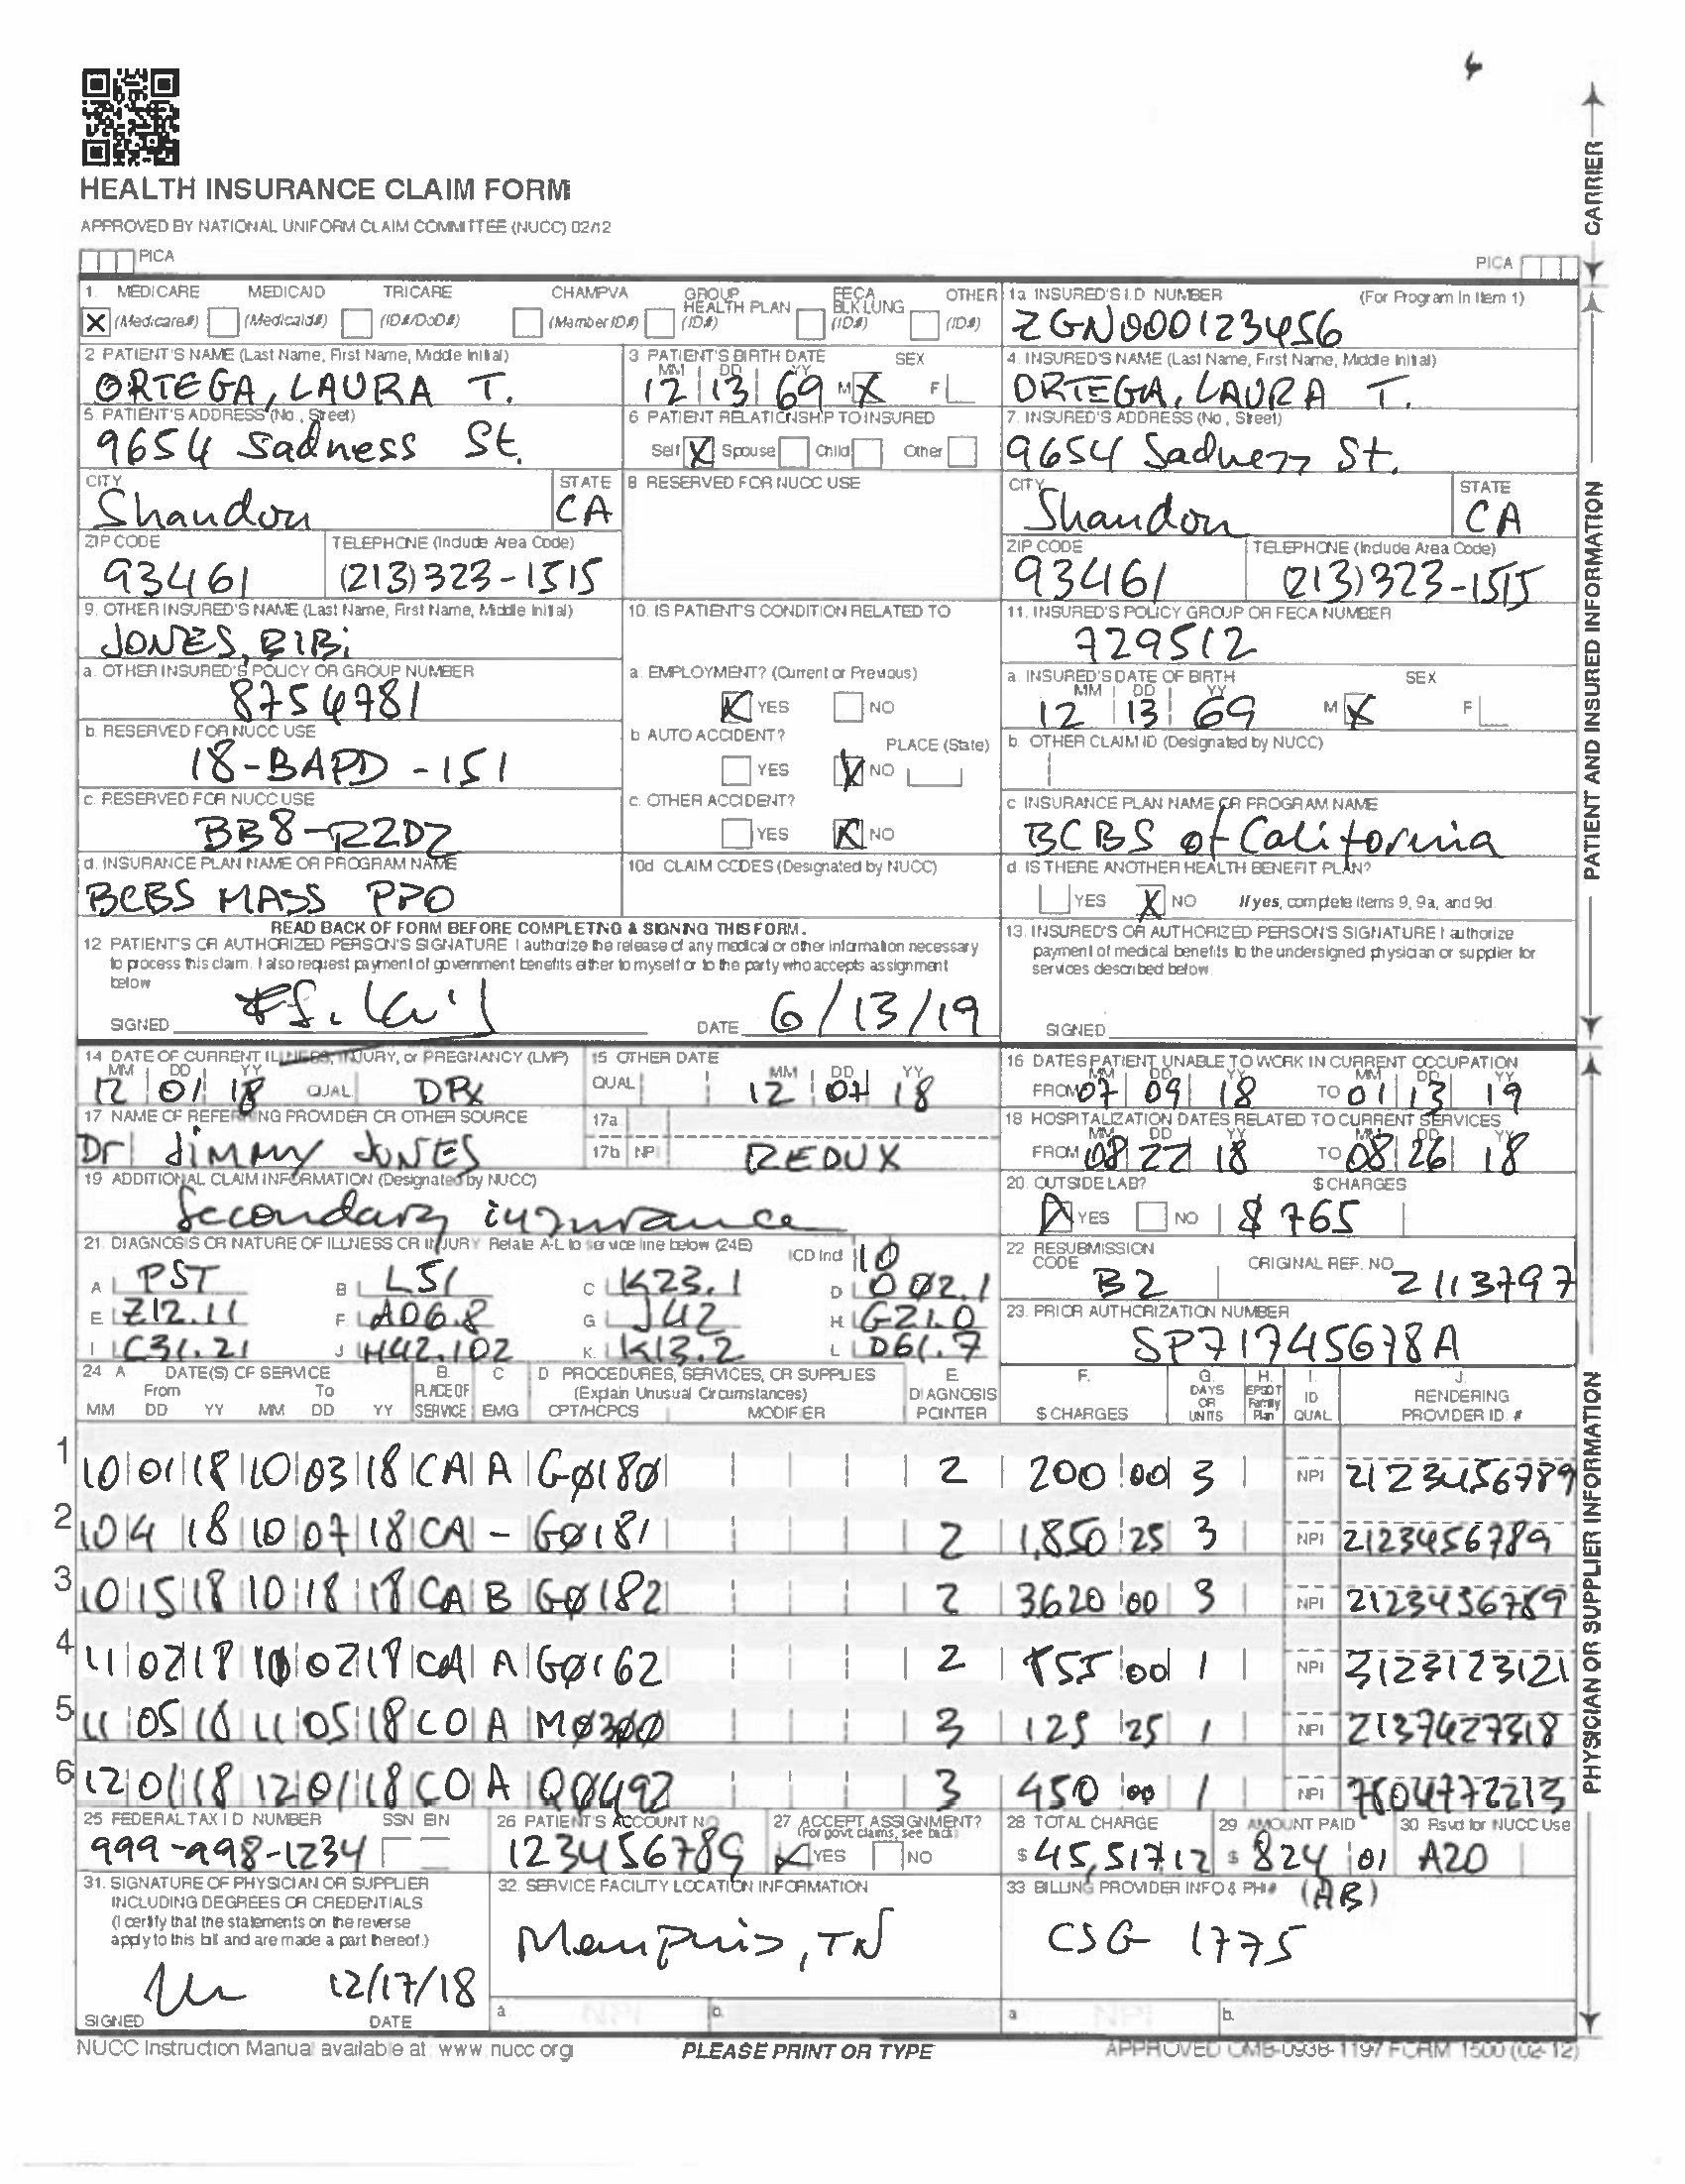 HEALTH INSURANCE CLAIM FORM
APPROVED BY NATIONAL UNIFORM CLAIM COMMITTEE (NUCC) 02/12
PICA
PICA
CARRIER
1. MEDICARE MEDICAID TRICARE CHAMPVA GROUP HEALTH PLAN FECA BLK LUNG OTHER
X (Medicare#) (Medicaid#) (ID#/DoD#) (Member ID#) (ID#) (ID#) (ID#)
1a INSURED'S I.D. NUMBER (For Program in Item 1)
ZGN000123456
2 PATIENT'S NAME (Last Name, First Name, Middle Initial)
ORTEGA, LAURA T.
3 PATIENT'S BIRTH DATE SEX
MM DD YY
12 13 69 M X F
4. INSURED'S NAME (Last Name, First Name, Middle Initial)
ORTEGA, LAURA T.
5. PATIENT'S ADDRESS (No., Street)
9654 Sadness St.
6 PATIENT RELATIONSHIP TO INSURED
Self X Spouse Child Other
7. INSURED'S ADDRESS (No., Street)
9654 Sadness St.
CITY STATE
Shandon CA
8 RESERVED FOR NUCC USE
CITY STATE
Shandon CA
ZIP CODE TELEPHONE (Include Area Code)
93461 (213) 323-1515
ZIP CODE TELEPHONE (Include Area Code)
93461 (213) 323-1515
9. OTHER INSURED'S NAME (Last Name, First Name, Middle Initial)
JONES, BIBi
10. IS PATIENT'S CONDITION RELATED TO
11. INSURED'S POLICY GROUP OR FECA NUMBER
729512
a. OTHER INSURED'S POLICY OR GROUP NUMBER
8754781
a. EMPLOYMENT? (Current or Previous)
X YES NO
a. INSURED'S DATE OF BIRTH SEX
MM DD YY
12 13 69 M X F
b. RESERVED FOR NUCC USE
18-BAPD-151
b AUTO ACCIDENT? PLACE (State)
YES X NO
b. OTHER CLAIM ID (Designated by NUCC)
c. RESERVED FOR NUCC USE
BB8-R2D2
c. OTHER ACCIDENT?
YES X NO
c INSURANCE PLAN NAME OR PROGRAM NAME
BCBS of California
d. INSURANCE PLAN NAME OR PROGRAM NAME
BCBS MASS PPO
10d CLAIM CODES (Designated by NUCC)
d IS THERE ANOTHER HEALTH BENEFIT PLAN?
YES X NO If yes, complete items 9, 9a, and 9d.
PATIENT AND INSURED INFORMATION
READ BACK OF FORM BEFORE COMPLETING & SIGNING THIS FORM.
12 PATIENT'S OR AUTHORIZED PERSON'S SIGNATURE I authorize the release of any medical or other information necessary
to process this claim. I also request payment of government benefits either to myself or to the party who accepts assignment
below
SIGNED DATE 6/13/19
13. INSURED'S OR AUTHORIZED PERSON'S SIGNATURE I authorize
payment of medical benefits to the undersigned physician or supplier for
services described below.
SIGNED
14 DATE OF CURRENT ILLNESS, INJURY, or PREGNANCY (LMP)
MM DD YY
12 01 18 QUAL DRX
15 OTHER DATE
QUAL MM DD YY
12 07 18
16 DATES PATIENT UNABLE TO WORK IN CURRENT OCCUPATION
MM DD YY MM DD YY
FROM 07 09 18 TO 01 13 19
17. NAME OF REFERRING PROVIDER OR OTHER SOURCE
Dr JIMMY JONES
17a
17b NPI REDUX
18 HOSPITALIZATION DATES RELATED TO CURRENT SERVICES
MM DD YY MM DD YY
FROM 08 22 18 TO 08 26 18
19 ADDITIONAL CLAIM INFORMATION (Designated by NUCC)
Secondary insurance
20. OUTSIDE LAB? $ CHARGES
X YES NO $ 765
21. DIAGNOSIS OR NATURE OF ILLNESS OR INJURY Relate A-L to service line below (24E) ICD Ind 10
A PST B L51 C K23.1 D 002.1
E Z12.11 F A06.8 G J42 H G21.0
I C31.21 J H42.102 K. K13.2 L D61.7
22 RESUBMISSION CODE ORIGINAL REF. NO
B2 2113797
23. PRIOR AUTHORIZATION NUMBER
SP71745678A
24 A DATE(S) OF SERVICE B. PLACE OF SERVICE C EMG D PROCEDURES, SERVICES, OR SUPPLIES E. DIAGNOSIS POINTER F. $ CHARGES G. DAYS OR UNITS H. EPSDT Family Plan I. ID QUAL J. RENDERING PROVIDER ID. #
From To (Explain Unusual Circumstances)
MM DD YY MM DD YY CPT/HCPCS MODIFIER
1 10 01 18 10 03 18 CA A G0180 2 200 00 3 NPI 2123456789
2 10 4 18 10 07 18 CA - G0181 2 1,850 25 3 NPI 2123456789
3 10 15 18 10 18 18 CA B G0182 2 3620 00 3 NPI 2123456789
4 11 02 18 10 02 18 CA A G0162 2 855 00 1 NPI 3123123121
5 11 05 18 11 05 18 CO A M0300 3 125 25 1 NPI 2137427318
6 12 01 18 12 01 18 CO A Q0492 3 450 00 1 NPI 7804772213
25 FEDERAL TAX I D NUMBER SSN EIN
999-998-1234
26 PATIENT'S ACCOUNT NO
123456789
27 ACCEPT ASSIGNMENT?
(For govt claims, see back)
X YES NO
28 TOTAL CHARGE
$ 45,517.12
29 AMOUNT PAID
$ 824 01
30 Rsvd for NUCC Use
A20
31. SIGNATURE OF PHYSICIAN OR SUPPLIER
INCLUDING DEGREES OR CREDENTIALS
(I certify that the statements on the reverse
apply to this bill and are made a part thereof.)
12/17/18
SIGNED DATE
32. SERVICE FACILITY LOCATION INFORMATION
Memphis, TN
a b.
33 BILLING PROVIDER INFO & PH# (AB)
CSG 1775
a b.
PHYSICIAN OR SUPPLIER INFORMATION
NUCC Instruction Manual available at www.nucc.org
PLEASE PRINT OR TYPE
APPROVED OMB-0938-1197 FORM 1500 (02-12)